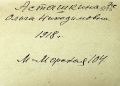 Асташкина
Ольга Никодимовна
1918г.
М-Морская 104